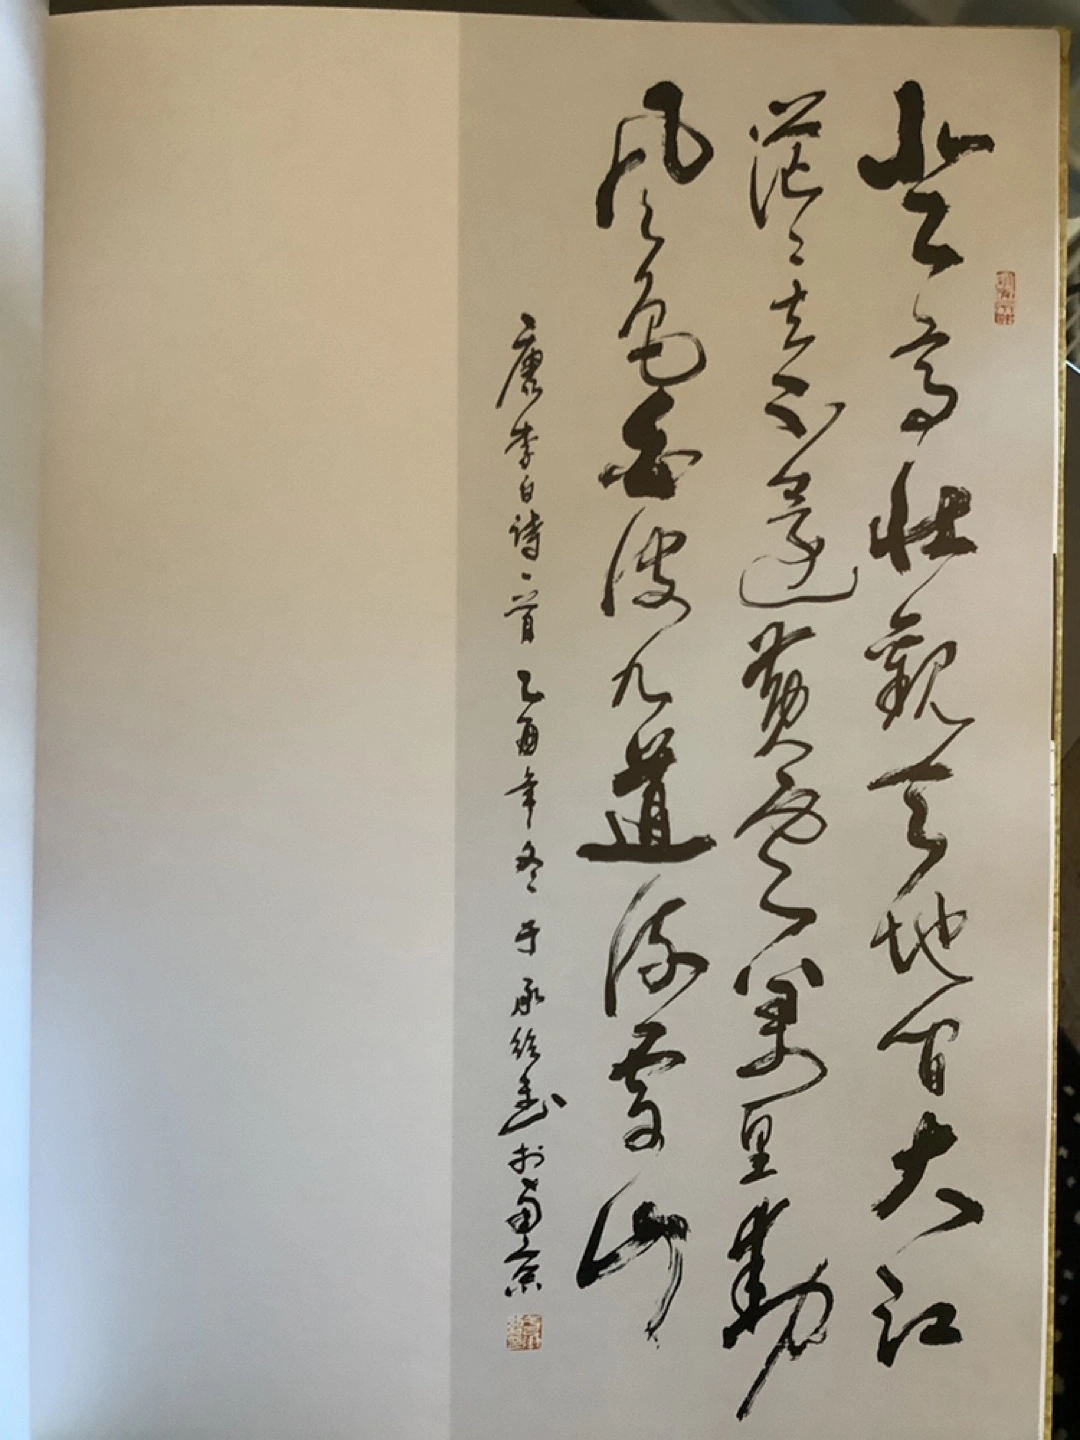 登高壯觀天地間大江
茫茫去不還黃雲萬里動
風色白波九道流雪山
唐李白诗一首乙酉年冬于承書於南京